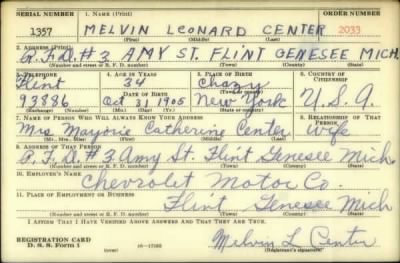 SERIAL NUMBER 1. NAME (Print) ORDER NUMBER
1357 MELVIN LEONARD CENTER 2033
(First) (Middle) (Last)
2. ADDRESS (Print)
R.F.D.#3 AMY ST. FLINT GENESEE MICH.
(Number and street or R. F. D. number) (Town) (County) (State)
3. TELEPHONE 4. AGE IN YEARS 5. PLACE OF BIRTH 6. COUNTRY OF CITIZENSHIP
Flint 34 Chazy
DATE OF BIRTH (Town or county)
93886 Oct 31 1905 New York U.S.A.
(Exchange) (Number) (Mo.) (Day) (Yr.) (State or country)
7. NAME OF PERSON WHO WILL ALWAYS KNOW YOUR ADDRESS 8. RELATIONSHIP OF THAT PERSON
Mrs Marjorie Catherine Center wife
(Mr., Mrs., Miss) (First) (Middle) (Last)
9. ADDRESS OF THAT PERSON
R.F.D.#3 Amy St. Flint Genesee Mich
(Number and street or R. F. D. number) (Town) (County) (State)
10. EMPLOYER'S NAME
Chevrolet Motor Co.
11. PLACE OF EMPLOYMENT OR BUSINESS
Flint Genesee Mich
(Number and street or R. F. D. number) (Town) (County) (State)
I AFFIRM THAT I HAVE VERIFIED ABOVE ANSWERS AND THAT THEY ARE TRUE.
REGISTRATION CARD
D. S. S. Form 1 Melvin L Center
(Registrant's signature)